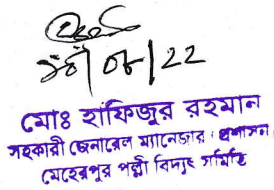 ১৪/০৮/22
মোঃ হাফিজুর রহমান
সহকারী জেনারেল ম্যানেজার (প্রশাসন)
মেহেরপুর পল্লী বিদ্যুৎ সমিতি